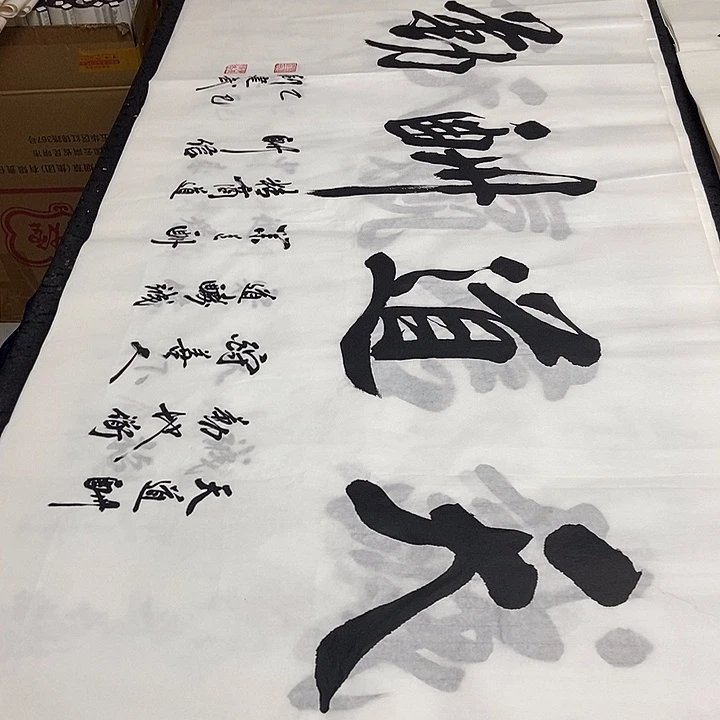 天道酬勤
天道酬
勤地道
酬善人
道酬誠
業道酬
精商道
酬信
乙巳